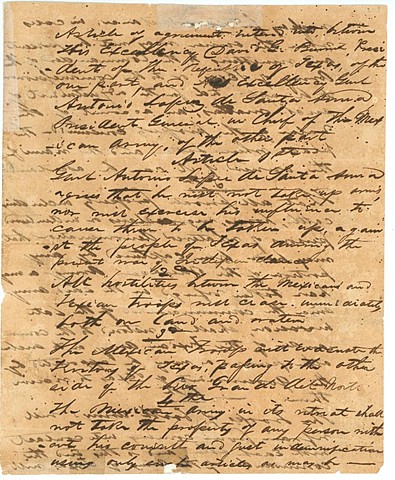 Article of agreement entered into between
His Excellency David G. Burnet Presi
dent of the Republic of Texas of the
one part, and Excellency Genl
Antonio Lopez de Santa Anna
President General in Chief of the Mex
ican Army, of the other part
Article 1st
Genl Antonio Lopez de Santa Anna
agrees that he will not take up arms
nor will exercise his influence to
cause them to be taken up, again
st the people of Texas during the
present war of Independence
2d
All hostilities between the Mexican and
Texian troops will cease immediately
both on land and water
3d
The Mexican troops will evacuate the
Territory of Texas, passing to the other
side of the Rio Grande del Norte
4th
The Mexican Army in its retreat shall
not take the property of any person with
out his consent and just indemnification
using only such articles as may be